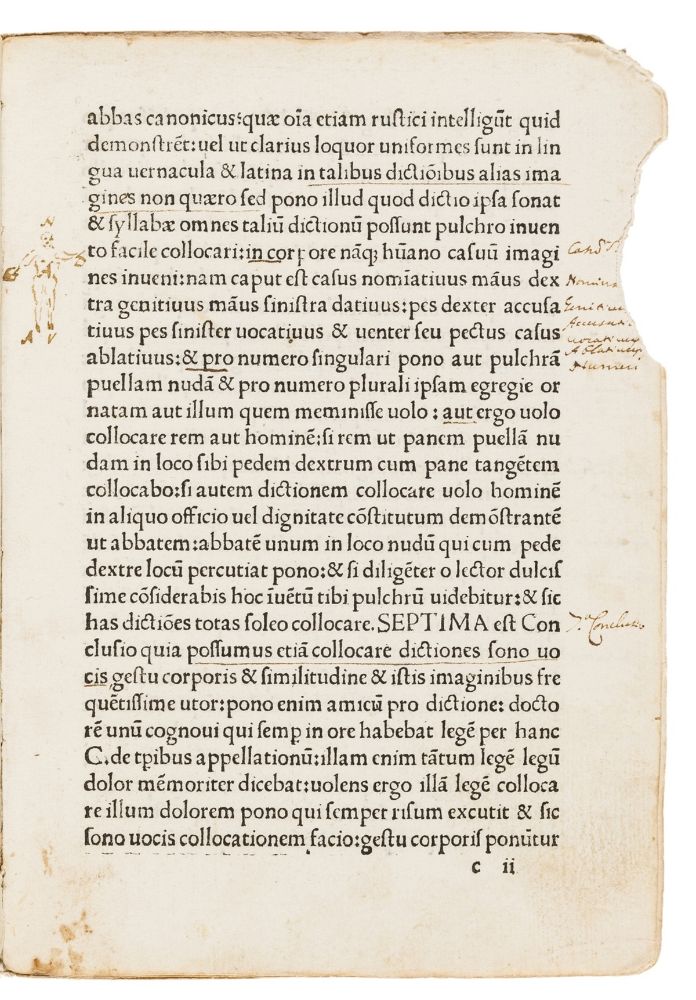 abbas canonicus:quæ oīa etiam rustici intelligūt quid
demonstrēt:uel ut clarius loquor uniformes sunt in lin
gua uernacula & latina in talibus dictiōibus alias ima
gines non quæro sed pono illud quod dictio ipsa sonat
& syllabæ omnes taliū dictionū possunt pulchro inuen
to facile collocari:in corpore nāq; hūano casuū imagi
nes inueni:nam caput est casus nomīatiuus māus dex
tra genitiuus māus sinistra datiuus:pes dexter accusa
tiuus pes sinister uocatiuus & uenter seu pectus casus
ablatiuus:& pro numero singulari pono aut pulchrā
puellam nudā & pro numero plurali ipsam egregie or
natam aut illum quem meminisse uolo : aut ergo uolo
collocare rem aut hominē:si rem ut panem puellā nu
dam in loco sibi pedem dextrum cum pane tangētem
collocabo:si autem dictionem collocare uolo hominē
in aliquo officio uel dignitate cōstitutum demōstrantē
ut abbatem:abbatē unum in loco nudū qui cum pede
dextre locū percutiat pono:& si diligēter o lector dulcis
sime cōsiderabis hoc īuētū tibi pulchrū uidebitur:& sic
has dictiōes totas soleo collocare.SEPTIMA est Con
clusio quia possumus etiā collocare dictiones sono uo
cis gestu corporis & similitudine & istis imaginibus fre
quētissime utor:pono enim amicū pro dictione: docto
rē unū cognoui qui semp in ore habebat legē per hanc
C. de tpibus appellationū:illam enim tātum legē legū
dolor mēmoriter dicebat:uolens ergo illā legē colloca
re illum dolorem pono qui semper risum excutit & sic
sono uocis collocationem facio:gestu corporis ponūtur
c ii
N
A V
Nominat
Genitiuu
Accusati
uocatiuus
Ablatiuus
Numeri
7.a Conclusio